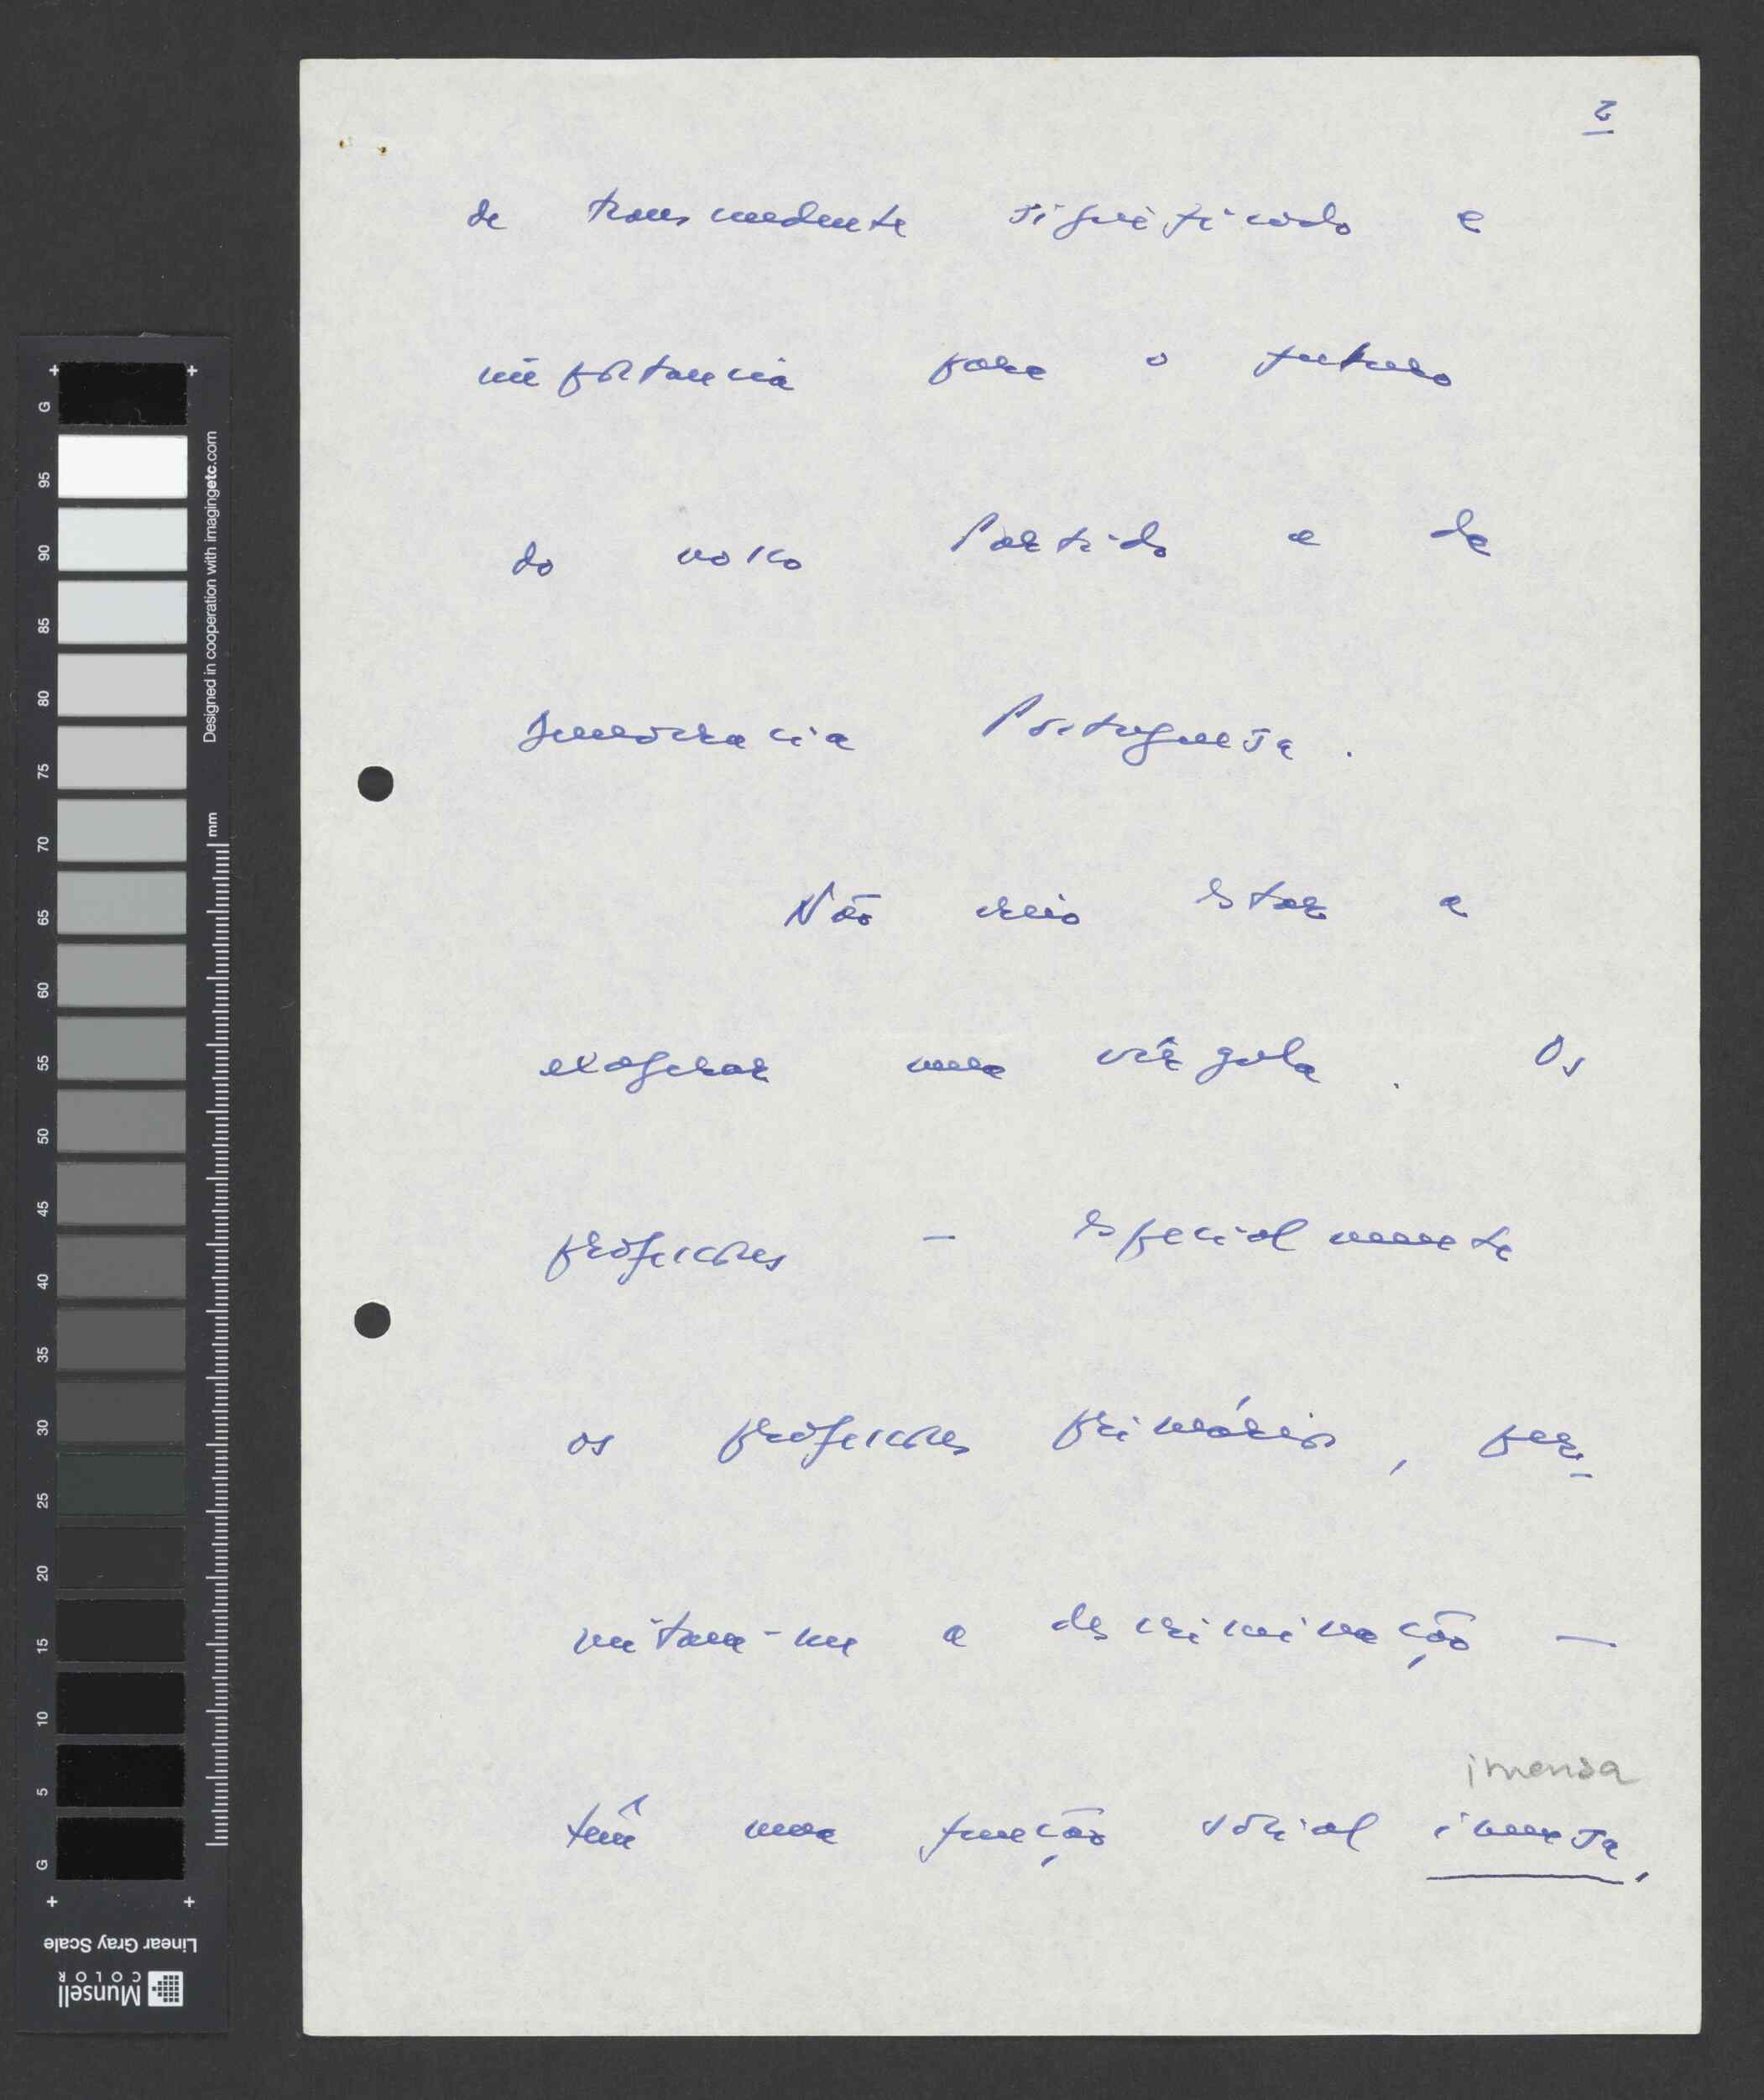 2
de transcendente significado e
importancia para o futuro
do nosso Partido e da
Democracia Portuguesa.
Não creio estar a
exagerar uma vírgula. Os
professores — especialmente
os professores primários, per-
mitam-me a descriminação —
imensa
têm uma função social imensa,
G
95
90
85
80
75
70
65
60
55
50
45
40
35
30
25
20
15
10
5
G
Designed in cooperation with imagingetc.com
mm
Linear Gray Scale
Munsell
COLOR